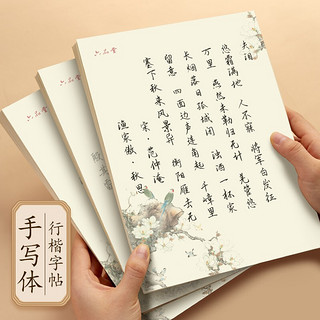 六品堂
渔家傲·秋思
宋 范仲淹
塞下秋来风景异 衡阳雁去无
留意 四面边声连角起 千嶂里
长烟落日孤城闭 浊酒一杯家
万里 燕然未勒归无计 羌管悠
悠霜满地 人不寐 将军白发征
夫泪
六品堂
六品堂
手写体
行楷字帖